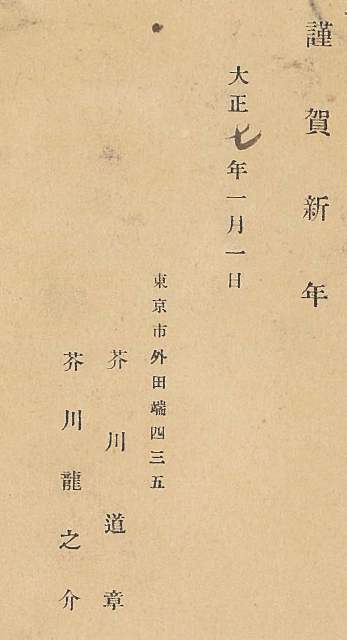 謹賀新年
大正七年一月一日
東京市外田端四三五
芥川道章
芥川龍之介